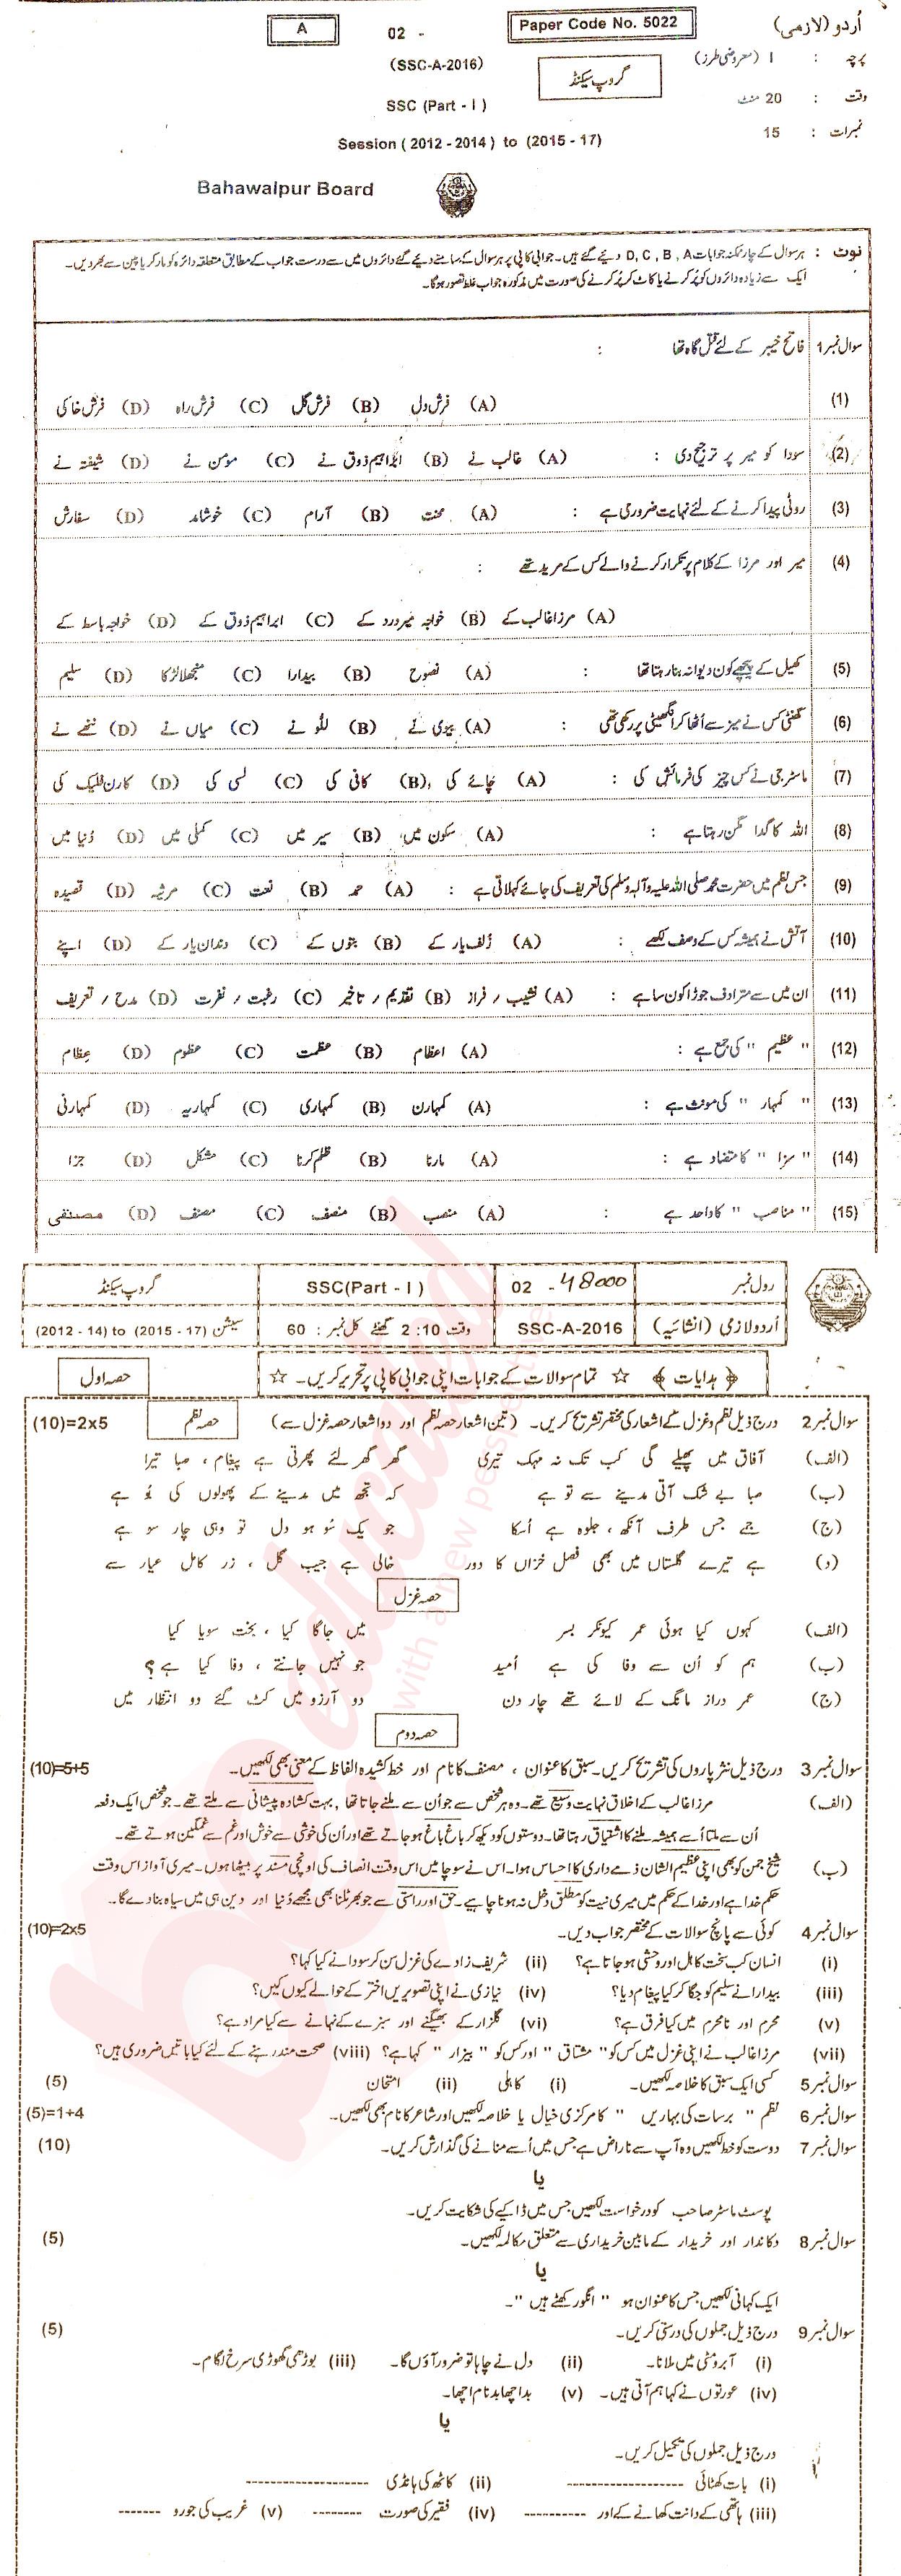 اُردو (لازمی) Paper Code No. 5022 02 - A
پرچہ : I (معروضی طرز) گروپ سیکنڈ (SSC-A-2016)
وقت : 20 منٹ SSC (Part - I)
نمبرات : 15 Session (2012 - 2014) to (2015 - 17)
Bahawalpur Board
نوٹ : ہر سوال کے چار ممکنہ جوابات D, C, B, A دیئے گئے ہیں۔ جوابی کاپی پر ہر سوال کے سامنے دیئے گئے دائروں میں سے درست جواب کے مطابق متعلقہ دائرہ کو مارکر یا پین سے بھر دیں۔
ایک سے زیادہ دائروں کو پُر کرنے یا کاٹ کر پُر کرنے کی صورت میں مذکورہ جواب غلط تصور ہوگا۔
سوال نمبر 1 فاتح خیبر کے لئے قتل گاہ تھا :
(1) (A) فرش دل (B) فرش گل (C) فرش راہ (D) فرش خاکی
(2) سودا کو میر پر ترجیح دی : (A) غالب نے (B) ابراہیم ذوق نے (C) مومن نے (D) شیفتہ نے
(3) روٹی پیدا کرنے کے لئے نہایت ضروری ہے : (A) محنت (B) آرام (C) خوشامد (D) سفارش
(4) میر اور مرزا کے کلام پر تکرار کرنے والے کس کے مرید تھے :
(A) مرزا غالب کے (B) خواجہ میر درد کے (C) ابراہیم ذوق کے (D) خواجہ باسط کے
(5) کھیل کے پیچھے کون دیوانہ بنا رہتا تھا : (A) نصوح (B) بیدارا (C) منجھلا لڑکا (D) سلیم
(6) گھنٹی کس نے میز سے اُٹھا کر انگھیٹی پر رکھی تھی : (A) بیوی نے (B) للّو نے (C) میاں نے (D) ننھے نے
(7) ماسٹر جی نے کس چیز کی فرمائش کی : (A) چائے کی (B) کافی کی (C) لسی کی (D) کارن فلیک کی
(8) اللہ کا گدا مگن رہتا ہے : (A) سکون میں (B) سیر میں (C) کملی میں (D) دُنیا میں
(9) جس نظم میں حضرت محمد صلی اللہ علیہ وآلہ وسلم کی تعریف کی جائے کہلاتی ہے : (A) حمد (B) نعت (C) مرثیہ (D) قصیدہ
(10) آتش نے ہمیشہ کس کے وصف لکھے : (A) زُلف یار کے (B) بتوں کے (C) دندان یار کے (D) اپنے
(11) ان میں سے مترادف جوڑا کون سا ہے : (A) نشیب / فراز (B) تقدیم / تاخیر (C) رغبت / نفرت (D) مدح / تعریف
(12) " عظیم " کی جمع ہے : (A) اعظام (B) عظمت (C) عظوم (D) عظام
(13) " کمہار " کی مونث ہے : (A) کمہارن (B) کمہاری (C) کمہاریہ (D) کمہارنی
(14) " سزا " کا متضاد ہے : (A) مارنا (B) ظلم کرنا (C) مشکل (D) جزا
(15) " مناصب " کا واحد ہے : (A) منصب (B) منصف (C) مصنف (D) مصنفی
رول نمبر 02 - 48000 SSC(Part - I) گروپ سیکنڈ
اُردو لازمی (انشائیہ) SSC-A-2016 وقت 2:10 گھنٹے کل نمبر : 60 سیشن (2012 - 14) to (2015 - 17)
﴿ ہدایات ﴾ ☆ تمام سوالات کے جوابات اپنی جوابی کاپی پر تحریر کریں۔ ☆ حصہ اول
سوال نمبر 2 درج ذیل نظم و غزل کے اشعار کی مختصر تشریح کریں۔ (تین اشعار حصہ نظم اور دو اشعار حصہ غزل سے) حصہ نظم (10)=2x5
(الف) آفاق میں پھیلے گی کب تک نہ مہک تیری گھر گھر لئے پھرتی ہے پیغام ، صبا تیرا
(ب) صبا بے شک آتی مدینے سے تو ہے کہ تجھ میں مدینے کے پھولوں کی بُو ہے
(ج) جمے جس طرف آنکھ ، جلوہ ہے اُسکا جو یک سُو ہو دل تو وہی چار سو ہے
(د) ہے تیرے گلستاں میں بھی فصل خزاں کا دور خالی ہے جیب گل ، زر کامل عیار سے
حصہ غزل
(الف) کہوں کیا ہوئی عمر کیونکر بسر میں جاگا کیا ، بخت سویا کیا
(ب) ہم کو اُن سے وفا کی ہے اُمید جو نہیں جانتے ، وفا کیا ہے؟
(ج) عمر دراز مانگ کے لائے تھے چار دن دو آرزو میں کٹ گئے دو انتظار میں
حصہ دوم
سوال نمبر 3 درج ذیل نثر پاروں کی تشریح کریں۔ سبق کا عنوان ، مصنف کا نام اور خط کشیدہ الفاظ کے معنی بھی لکھیں۔ (10)=5+5
(الف) مرزا غالب کے اخلاق نہایت وسیع تھے۔ وہ ہر شخص سے جو اُن سے ملنے جاتا تھا ، بہت کشادہ پیشانی سے ملتے تھے۔ جو شخص ایک دفعہ
اُن سے ملتا اُسے ہمیشہ ملنے کا اشتیاق رہتا تھا۔ دوستوں کو دیکھ کر باغ باغ ہو جاتے تھے اور اُن کی خوشی سے خوش اور غم سے غمگین ہوتے تھے۔
(ب) شیخ جمن کو بھی اپنی عظیم الشان ذمے داری کا احساس ہوا۔ اس نے سوچا میں اس وقت انصاف کی اونچی مسند پر بیٹھا ہوں۔ میری آواز اس وقت
حکم خدا ہے اور خدا کے حکم میں میری نیت کو مطلق دخل نہ ہونا چاہیے۔ حق اور راستی سے جو بھر ٹلنا بھی مجھے دُنیا اور دین ہی میں سیاہ بنا دے گا۔
سوال نمبر 4 کوئی سے پانچ سوالات کے مختصر جواب دیں۔ (10)=2x5
(i) انسان کب سخت کاہل اور وحشی ہو جاتا ہے؟ (ii) شریف زادے کی غزل سن کر سودا نے کیا کہا؟
(iii) بیدارا نے سلیم کو جگا کر کیا پیغام دیا؟ (iv) نیازی نے اپنی تصویریں اختر کے حوالے کیوں کیں؟
(v) محرم اور نامحرم میں کیا فرق ہے؟ (vi) گلزار کے بھیگنے اور سبزے کے نہانے سے کیا مراد ہے؟
(vii) مرزا غالب نے اپنی غزل میں کس کو " مشتاق " اور کس کو " بیزار " کہا ہے؟ (viii) صحت مند رہنے کے لئے کیا باتیں ضروری ہیں؟
سوال نمبر 5 کسی ایک سبق کا خلاصہ لکھیں۔ (i) کاہلی (ii) امتحان (5)
سوال نمبر 6 نظم " برسات کی بہاریں " کا مرکزی خیال یا خلاصہ لکھیں اور شاعر کا نام بھی لکھیں۔ (5)=1+4
سوال نمبر 7 دوست کو خط لکھیں وہ آپ سے ناراض ہے جس میں اُسے منانے کی گذارش کریں۔ (10)
یا
پوسٹ ماسٹر صاحب کو درخواست لکھیں جس میں ڈاکیے کی شکایت کریں۔
سوال نمبر 8 دکاندار اور خریدار کے مابین خریداری سے متعلق مکالمہ لکھیں۔ (5)
یا
ایک کہانی لکھیں جس کا عنوان ہو " انگور کھٹے ہیں "۔
سوال نمبر 9 درج ذیل جملوں کی درستی کریں۔ (5)
(i) آبرو مٹی میں ملانا۔ (ii) دل نے چاہا تو ضرور آؤں گا۔ (iii) بوڑھی گھوڑی سرخ لگام۔
(iv) عورتوں نے کہا ہم آتی ہیں۔ (v) بد اچھا بد نام اچھا۔
یا
درج ذیل جملوں کی تکمیل کریں۔
(i) بات کھٹائی ------------------- (ii) کاٹھ کی ہانڈی --------------------
(iii) ہاتھی کے دانت کھانے کے اور ---------- (iv) فقیر کی صورت -------- (v) غریب کی جورو -------
educated
with a new perspective